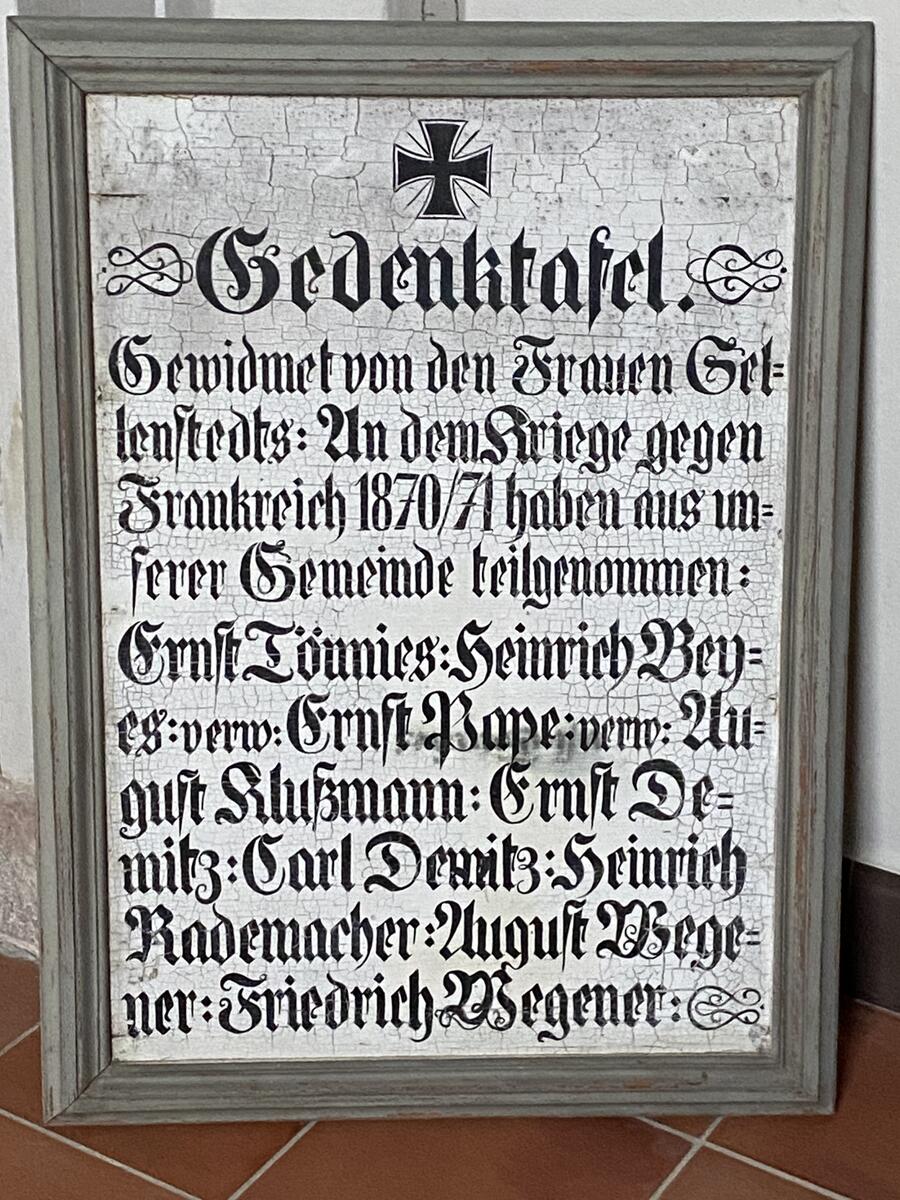 Gedenktafel.
Gewidmet von den Frauen Sel=
lenstedts: An dem Kriege gegen
Frankreich 1870/71 haben aus un=
serer Gemeinde teilgenommen:
Ernst Tönnies: Heinrich Bey=
es: verw: Ernst Pape: verw: Au=
gust Klußmann: Ernst De=
mitz: Carl Demitz: Heinrich
Rademacher: August Wege=
ner: Friedrich Wegener: